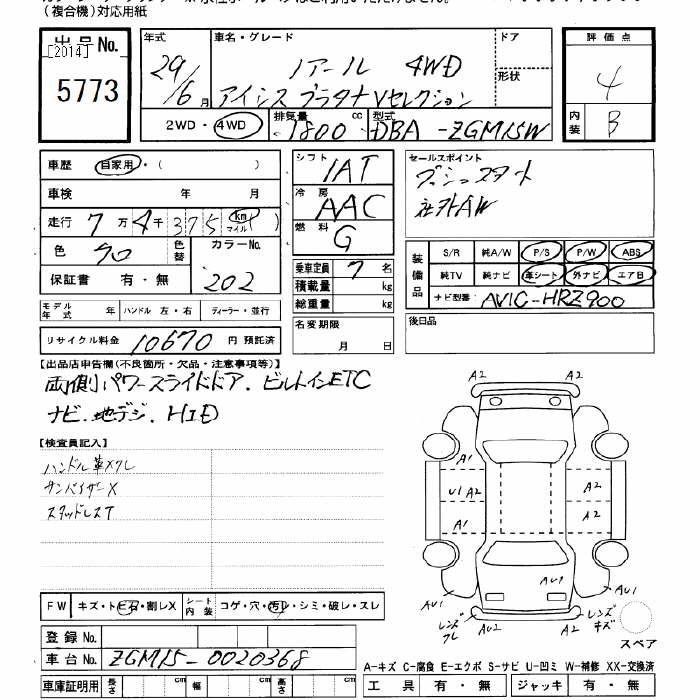 (複合機)対応用紙
出品No.
[2014]
5773
年式 29/6月
車名・グレード ノアール 4WD
アイシス プラタナ Vセレクション
ドア
形状
評価点 4
内装 B
2WD・4WD 排気量 1800 cc 型式 DBA-ZGM15W
車歴 自家用・( )
車検 年 月
走行 7万4千375 km マイル ( )
色 クロ 色替 カラーNo. 202
保証書 有・無
シフト IAT
冷房 AAC
燃料 G
乗車定員 7名
積載量 kg
総重量 kg
セールスポイント
プッシュスタート
社外AW
装備品 S/R 純A/W P/S P/W ABS
純TV 純ナビ 革シート 外ナビ エアB
ナビ型番 AVIC-HRZ900
モデル年式 年 ハンドル 左・右 ディーラー・並行
リサイクル料金 10670 円 預託済
名変期限 月 日
後日品
【出品店申告欄(不良箇所・欠品・注意事項等)】
両側パワースライドドア.ビルトインETC
ナビ.地デジ.HID
【検査員記入】
ハンドル革スレ
サンバイザーX
スタッドレスT
A2
A2
A1
U1 A2
A2
A1
A2
AU1
AU1
AU1
レンズワレ
AU2
A2
レンズキズ
スペア
FW キズ・トビ石・割レX シート内装 コゲ・穴・汚レ・シミ・破レ・スレ
登録No.
車台No. ZGM15-0020368
車庫証明用 長さ cm 幅 cm 高さ cm
A-キズ C-腐食 E-エクボ S-サビ U-凹ミ W-補修 XX-交換済
工具 有・無 ジャッキ 有・無